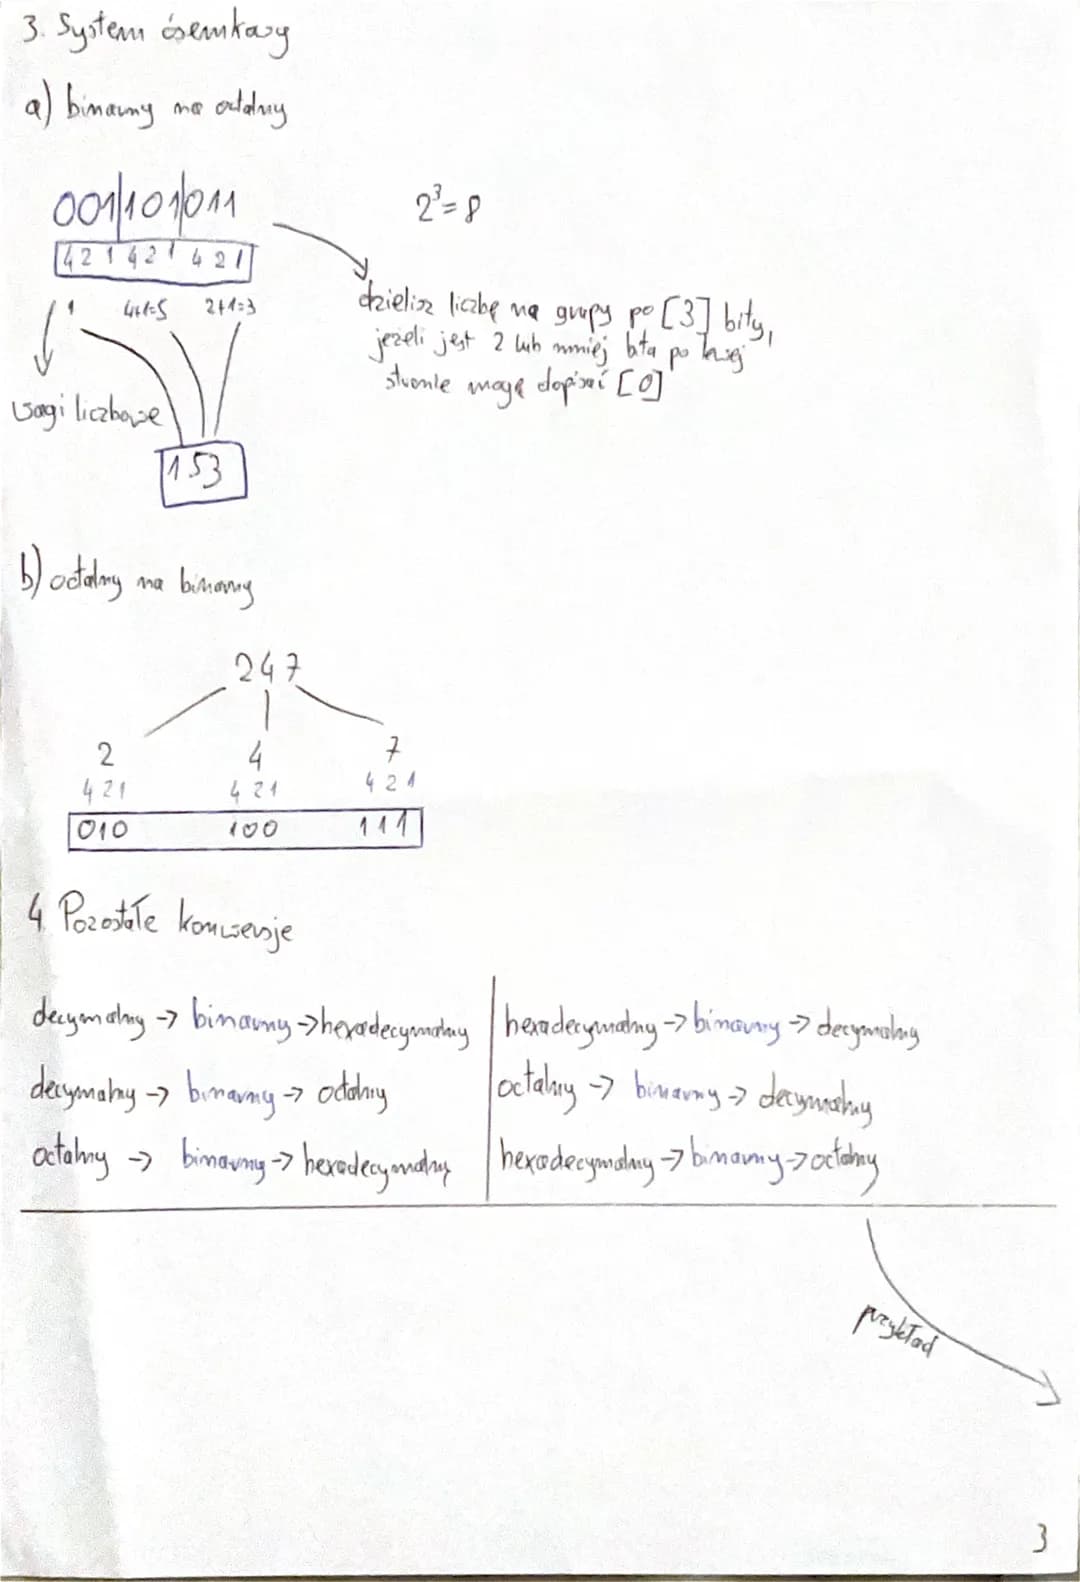 3. System ósemkowy
a) binarny na octalny
001|101|011
2³=8
421 421 421
1 4+1=5 2+1=3
dzielisz liczbę na grupy po [3] bity,
jeżeli jest 2 lub mniej bita po lewej
stronie mogę dopisać [0]
wagi liczbowe
153
b) octalny na binarny
247
2 4 7
421 421 421
010 100 111
4 Pozostałe konwersje
decymalny -> binarny -> hexadecymalny
decymalny -> binarny -> octalny
octalny -> binarny -> hexadecymalny
hexadecymalny -> binarny -> decymalny
octalny -> binarny -> decymalny
hexadecymalny -> binarny -> octalny
przykład
3